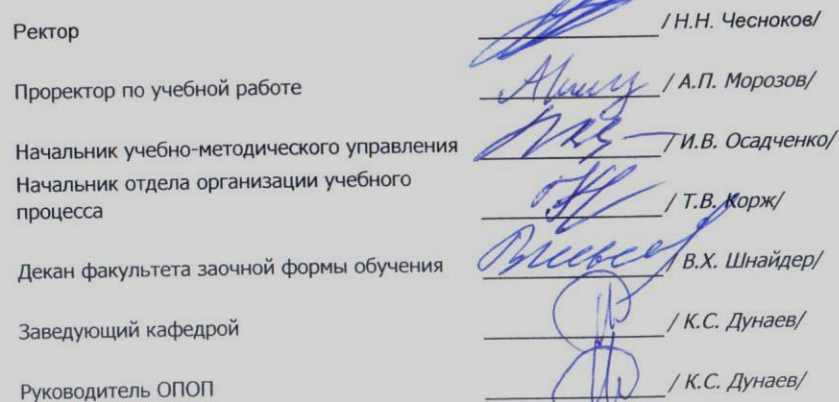 Ректор / Н.Н. Чесноков/
Проректор по учебной работе / А.П. Морозов/
Начальник учебно-методического управления / И.В. Осадченко/
Начальник отдела организации учебного
процесса / Т.В. Корж/
Декан факультета заочной формы обучения / В.Х. Шнайдер/
Заведующий кафедрой / К.С. Дунаев/
Руководитель ОПОП / К.С. Дунаев/